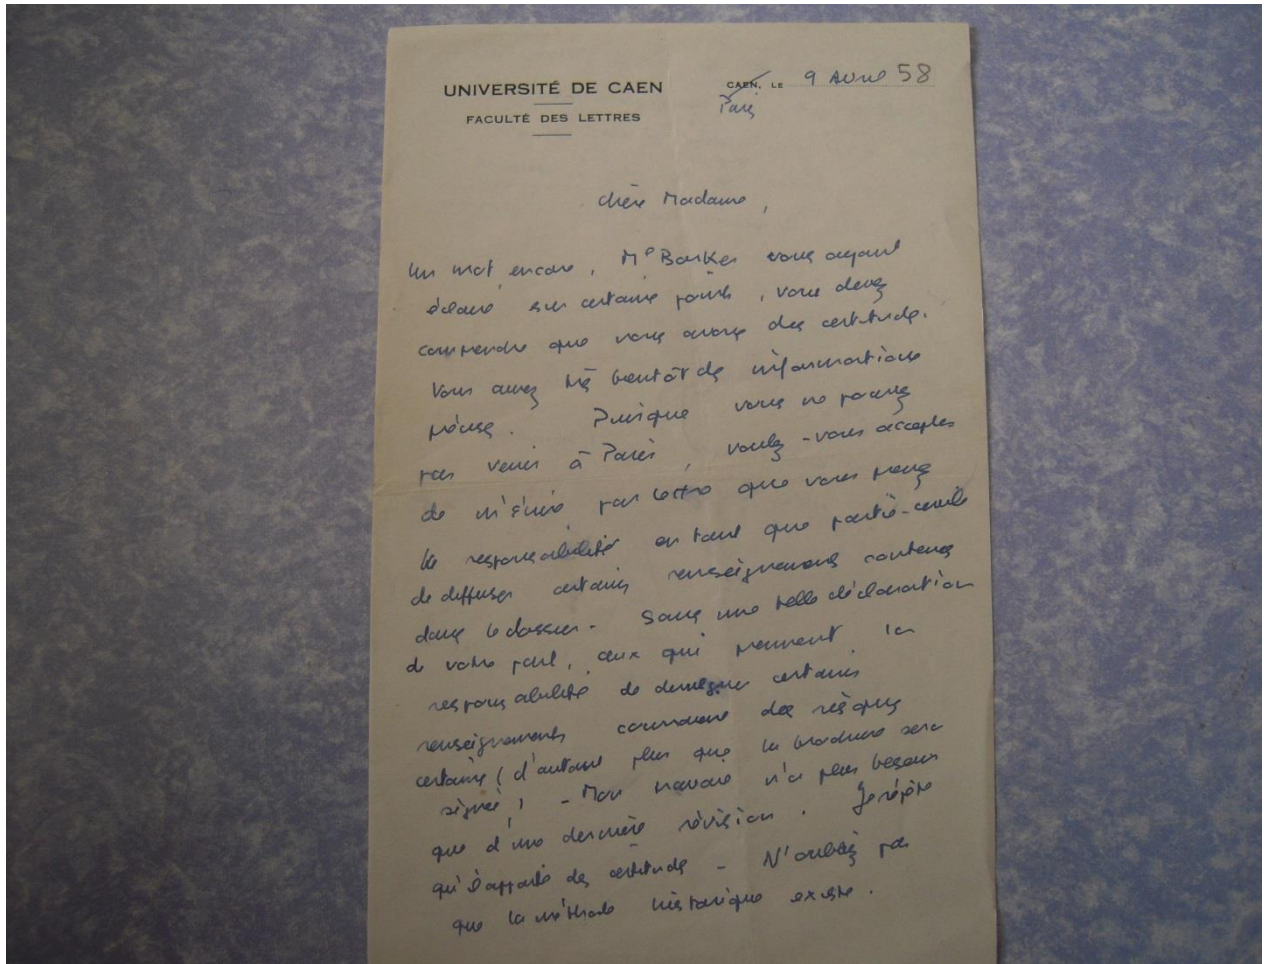 UNIVERSITÉ DE CAEN
FACULTÉ DES LETTRES
CAEN, LE 9 Avril 58
Paris
Chère Madame,
Un mot encore. Me Barker vous ayant
éclairé sur certains points, vous devez
comprendre que nous avons des certitudes.
Vous aurez très bientôt des informations
précises. Puisque vous ne pouvez
pas venir à Paris, voulez-vous accepter
de m'écrire par lettre que vous prenez
la responsabilité en tant que partie-civile
de diffuser certains renseignements contenus
dans le dossier. Sans une telle déclaration
de votre part, ceux qui prennent la
responsabilité de divulguer certains
renseignements courraient des risques
certains (d'autant plus que la brochure sera
signée) - Mon travail n'a plus besoin
que d'une dernière révision. Je répète
qu'il apporte des certitudes - N'oubliez pas
que la méthode historique existe.